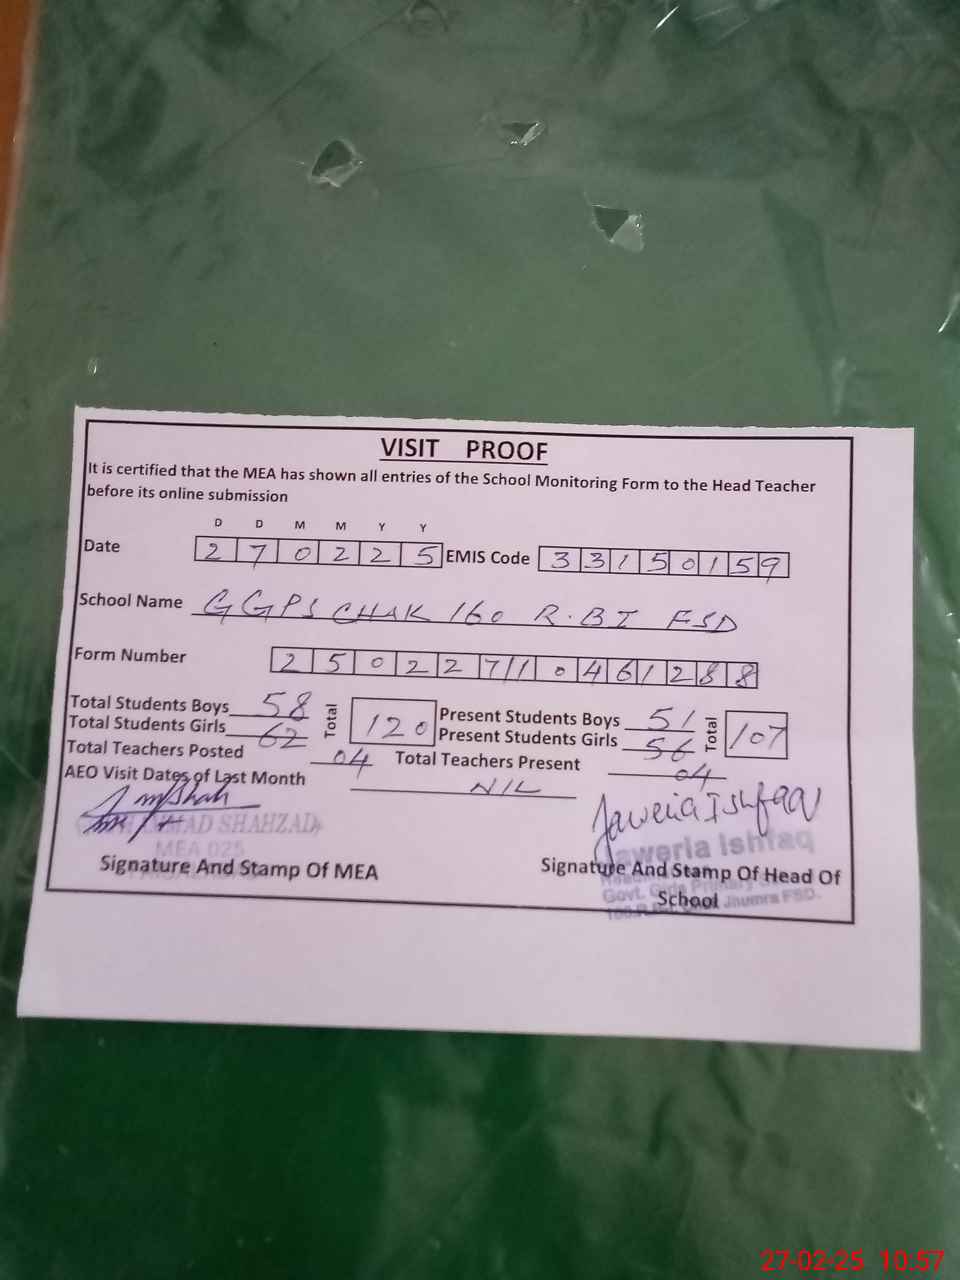 VISIT PROOF
It is certified that the MEA has shown all entries of the School Monitoring Form to the Head Teacher
before its online submission
D D M M Y Y
Date 2 7 0 2 2 5 EMIS Code 3 3 1 5 0 1 5 9
School Name GGPS CHAK 160 R.BI FSD
Form Number 2 5 0 2 2 7 1 1 0 4 6 1 2 8 8
Total Students Boys 58 Total 120 Present Students Boys 51 Total 107
Total Students Girls 62 Present Students Girls 56
Total Teachers Posted 04 Total Teachers Present 04
AEO Visit Dates of Last Month NIL
Jaweria Ishfaq
SHAHZAD
MEA 025
Jaweria Ishfaq
Signature And Stamp Of MEA Signature And Stamp Of Head Of
School
Govt. Girls Primary
Jhumra FSD.
27-02-25 10:57